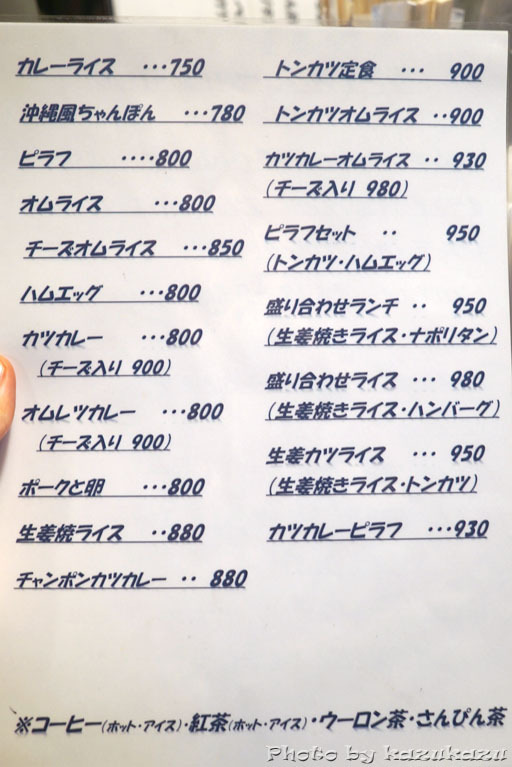 カレーライス ・・・750
沖縄風ちゃんぽん ・・・780
ピラフ ・・・・800
オムライス ・・・800
チーズオムライス ・・・850
ハムエッグ ・・・800
カツカレー ・・・800
(チーズ入り 900)
オムレツカレー ・・・800
(チーズ入り 900)
ポークと卵 ・・・800
生姜焼ライス ・・880
チャンポンカツカレー ・・ 880
トンカツ定食 ・・・ 900
トンカツオムライス ・・900
カツカレーオムライス ・・ 930
(チーズ入り 980)
ピラフセット ・・ 950
(トンカツ・ハムエッグ)
盛り合わせランチ ・・ 950
(生姜焼きライス・ナポリタン)
盛り合わせライス ・・・ 980
(生姜焼きライス・ハンバーグ)
生姜カツライス ・・・ 950
(生姜焼きライス・トンカツ)
カツカレーピラフ ・・・930
※コーヒー(ホット・アイス)・紅茶(ホット・アイス)・ウーロン茶・さんぴん茶
Photo by kazukazu